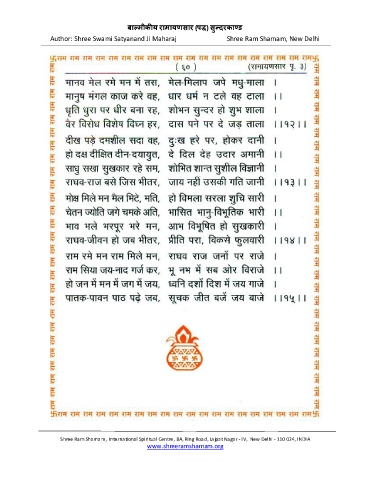 बाल्मीकीय रामायणसार (पद्य) सुन्दरकाण्ड
Author: Shree Swami Satyanand Ji Maharaj Shree Ram Sharnam, New Delhi
卐राम राम राम राम राम राम राम राम राम राम राम राम राम राम राम राम राम राम राम राम卐
( ६० ) (रामायणसार पृ. ३)
मानव मेल रमे मन में तरा, मेल-मिलाप जपे मधु-माला ।
मानुष मंगल काज करे वह, धार धर्म न टले वह टाला ।।
धृति धुरा पर धीर बना रह, शोभन सुन्दर हो शुभ शाला ।
वैर विरोध विशेष विघ्न हर, दास पने पर दे जड़ ताला ।।१२।।
दीख पड़े दमशील सदा वह, दुःख हरे पर, होकर दानी ।
हो दक्ष दीक्षित दीन-दयायुत, दे दिल देह उदार अमानी ।।
साधु सखा सुखकार रहे सम, शोभित शान्त सुशील विज्ञानी ।
राघव-राज बसे जिस भीतर, जाय नही उसकी गति जानी ।।१३।।
मोक्ष मिले मन मैल मिटे, मति, हो विमला सरला शुचि सारी ।
चेतन ज्योति जगे चमके अति, भासित भानु-विभूतिक भारी ।।
भाव भले भरपूर भरे मन, आभ विभूषित हो सुखकारी ।
राघव-जीवन हो जब भीतर, प्रीति परा, विकसे फुलवारी ।।१४।।
राम रमे मन राम मिले मन, राघव राज जनों पर राजे ।
राम सिया जय-नाद गर्ज कर, भू नभ में सब ओर विराजे ।।
हो जन में मन में जग में जय, ध्वनि दशों दिश में जय गाजे ।
पातक-पावन पाठ पढ़े जब, सूचक जीत बजें जय बाजे ।।१५।।
卐राम राम राम राम राम राम राम राम राम राम राम राम राम राम राम राम राम राम राम राम卐
Shree Ram Sharnam, International Spiritual Centre, 8A, Ring Road, Lajpat Nagar - IV, New Delhi - 110 024, INDIA
www.shreeramsharnam.org